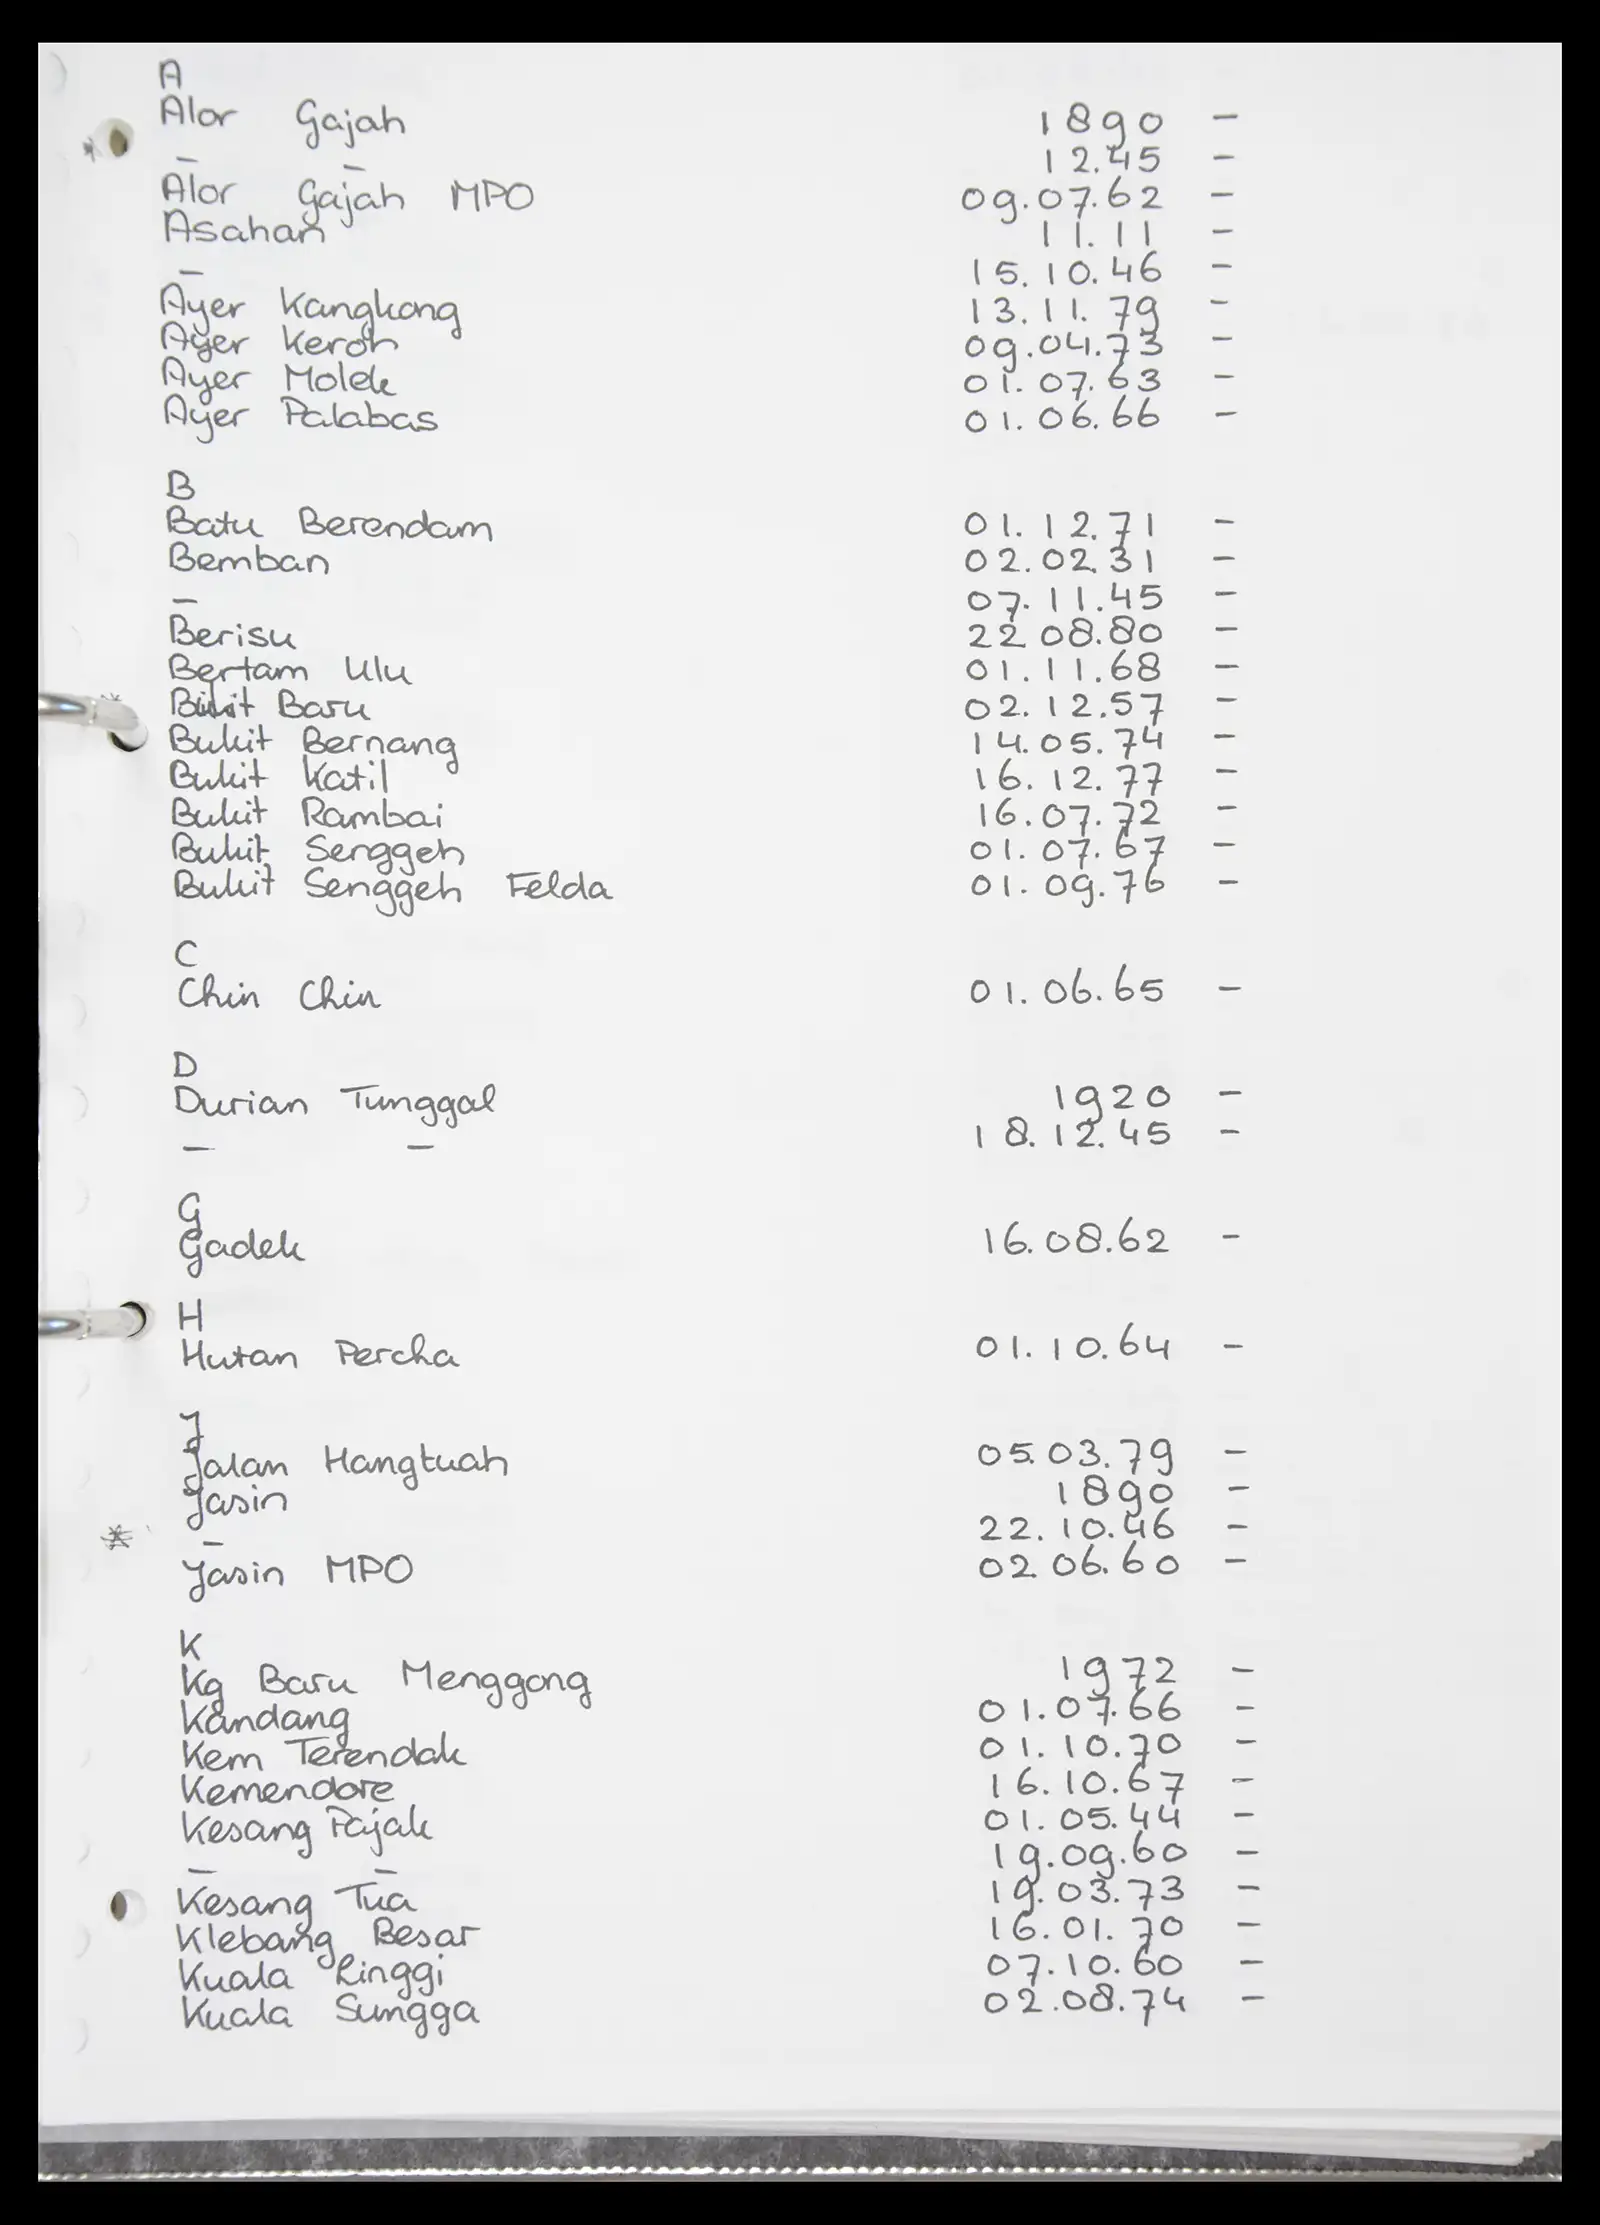 A
Alor Gajah 1890 -
- - 12.45 -
Alor Gajah MPO 09.07.62 -
Asahan 11.11 -
- 15.10.46 -
Ayer Kangkong 13.11.79 -
Ayer Keroh 09.04.73 -
Ayer Molek 01.07.63 -
Ayer Palabas 01.06.66 -
B
Batu Berendam 01.12.71 -
Bemban 02.02.31 -
- 07.11.45 -
Berisu 22.08.80 -
Bertam Ulu 01.11.68 -
Bukit Baru 02.12.57 -
Bukit Bernang 14.05.74 -
Bukit Katil 16.12.77 -
Bukit Rambai 16.07.72 -
Bukit Senggeh 01.07.67 -
Bukit Senggeh Felda 01.09.76 -
C
Chin Chin 01.06.65 -
D
Durian Tunggal 1920 -
- - 18.12.45 -
G
Gadek 16.08.62 -
H
Hutan Percha 01.10.64 -
J
Jalan Hangtuah 05.03.79 -
Jasin 1890 -
- 22.10.46 -
Jasin MPO 02.06.60 -
K
Kg Baru Menggong 1972 -
Kandang 01.07.66 -
Kem Terendak 01.10.70 -
Kemendore 16.10.67 -
Kesang Pajak 01.05.44 -
- - 19.09.60 -
Kesang Tua 19.03.73 -
Klebang Besar 16.01.70 -
Kuala Linggi 07.10.60 -
Kuala Sungga 02.08.74 -